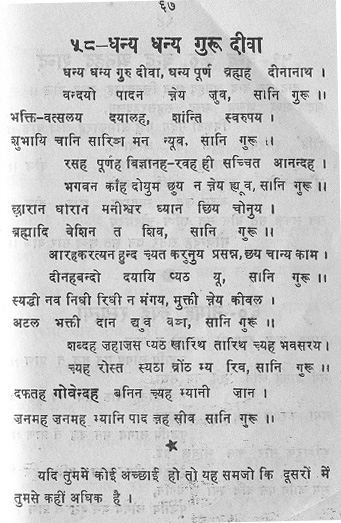 ६७
५८–धन्य धन्य गुरू दीवा
धन्य धन्य गुरु दीवा, धन्य पूर्ण ब्रह्मह दीनानाथ ।
वन्दयो पादन च्नेय जुव, सानि गुरू ।।
भक्ति-वत्सलय दयालह, शांन्ति स्वरुपय ।
शुभायि चानि सारिञ मन न्यूव, सानि गुरू ।।
रसह पूर्णह बिज्ञानह-रवह ही सच्चित आनन्दह ।
भगवन कांह दोयुम छुय न च्नेय ह्यूव, सानि गुरू ।।
छारान धारान मनीश्वर ध्यान छिय चोनुय ।
ब्रह्मादि बेशिन त शिव, सानि गुरू ।।
आरहकरत्यन हुन्द च्यत करुनुय प्रसन्न, छय चान्य काम ।
दीनहबन्दो दयायि प्यठ यू, सानि गुरू ।।
स्यद्धी नव निधी रिधी न मंगय, मुक्ती च्नेय कीवल ।
अटल भक्ती दान द्युव वञ, सानि गुरू ।।
शब्दह जहाजस प्यठ खारिथ तारिथ च्यह भवसरय ।
च्यह रोस्त स्यठा ब्रोंठ म्य रिव, सानि गुरू ।।
दफतह गोवेन्दह बनिन च्यह म्यानी जान ।
जनमह जनमह म्यानि पाद च्नह सीव सानि गुरू ।।
यदि तुममें कोई अच्छाई हो तो यह समजो कि दूसरों में
तुमसे कहीं अधिक है ।